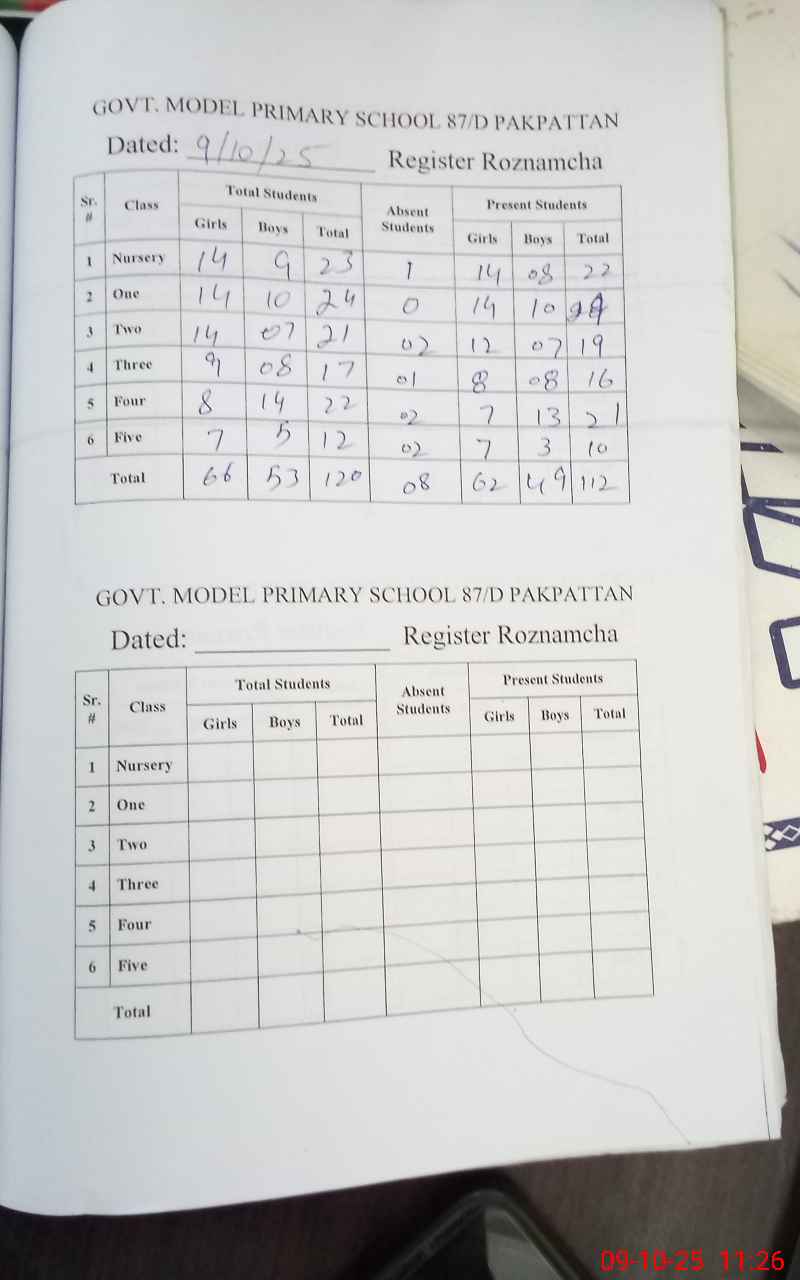 GOVT. MODEL PRIMARY SCHOOL 87/D PAKPATTAN
Dated: 9/10/25 Register Roznamcha
Sr. # Class Total Students Absent Students Present Students
Girls Boys Total Girls Boys Total
1 Nursery 14 9 23 1 14 08 22
2 One 14 10 24 0 14 10 24
3 Two 14 07 21 02 12 07 19
4 Three 9 08 17 01 8 08 16
5 Four 8 14 22 02 7 13 21
6 Five 7 5 12 02 7 3 10
Total 66 53 120 08 62 49 112
GOVT. MODEL PRIMARY SCHOOL 87/D PAKPATTAN
Dated: Register Roznamcha
Sr. # Class Total Students Absent Students Present Students
Girls Boys Total Girls Boys Total
1 Nursery
2 One
3 Two
4 Three
5 Four
6 Five
Total
09-10-25 11:26